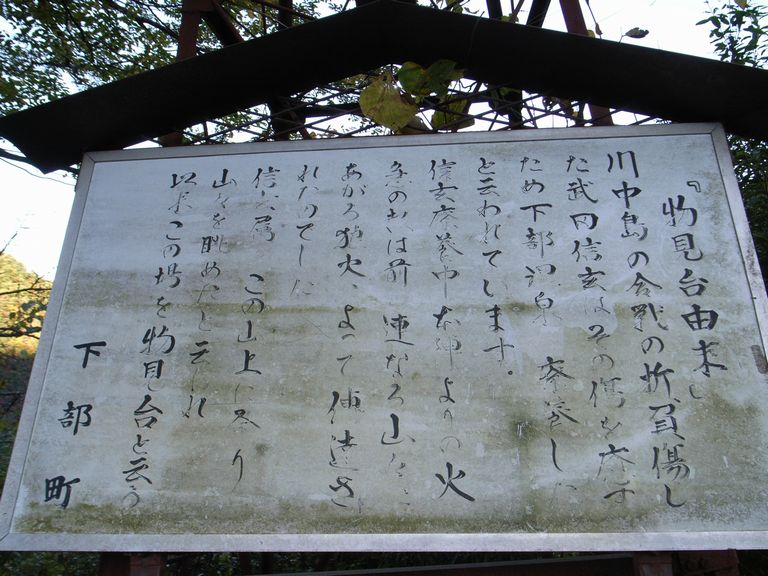 『物見台由来』
川中島の合戦の折、負傷し
た武田信玄はその傷を
ため下部温泉 療養した
と云われています。
信玄療養中 よりの火
急の は前 連なる山々に
あがる 火、よって伝達さ
れたのでした
信玄 この山上に登り
山々を眺めたと云われ
以来この場を物見台と云う
下部町